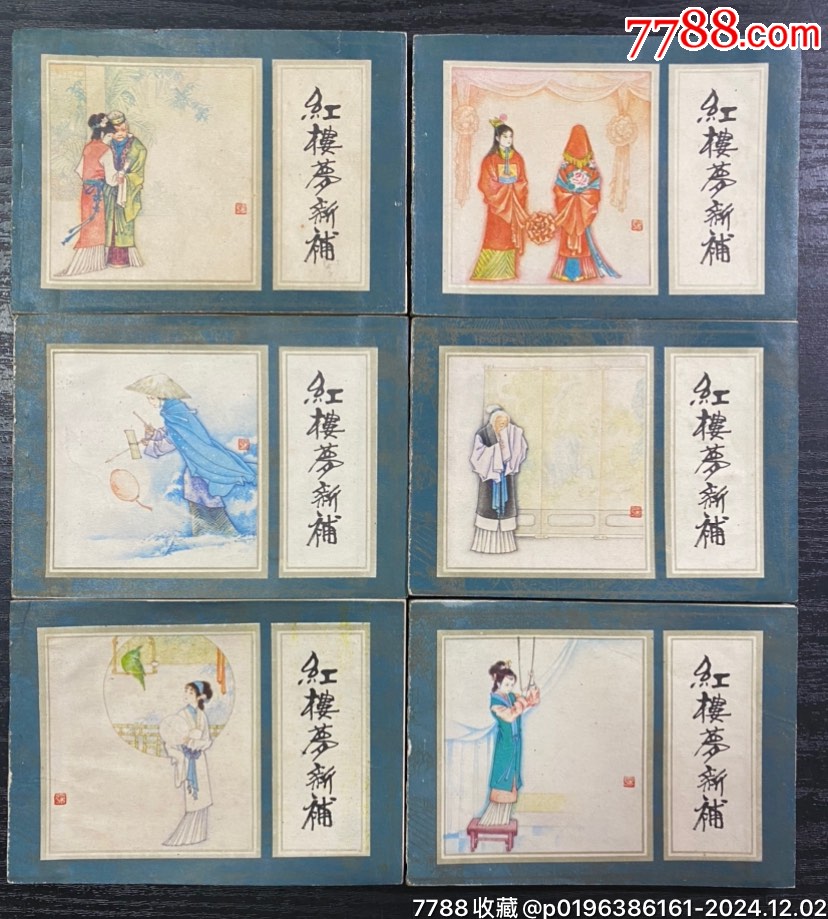 7788.com
紅樓夢新補
紅樓夢新補
紅樓夢新補
紅樓夢新補
紅樓夢新補
紅樓夢新補
7788收藏@p0196386161-2024.12.02